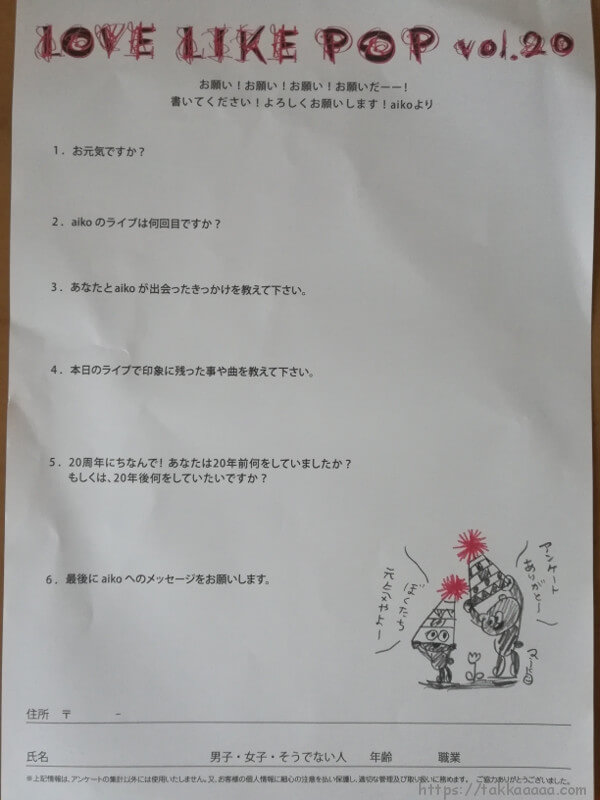 LOVE LIKE POP vol.20
お願い！お願い！お願い！お願いだーー！
書いてください！よろしくお願いします！aikoより
1．お元気ですか？
2．aikoのライブは何回目ですか？
3．あなたとaikoが出会ったきっかけを教えて下さい。
4．本日のライブで印象に残った事や曲を教えて下さい。
5．20周年にちなんで！あなたは20年前何をしていましたか？
もしくは、20年後何をしていたいですか？
6．最後にaikoへのメッセージをお願いします。
アンケート
ありがとー
ぼくたち
住所　〒　　－
氏名　男子・女子・そうでない人　年齢　職業
※上記情報は、アンケートの集計以外には使用いたしません。又、お客様の個人情報に細心の注意を払い保護し、適切な管理及び取り扱いに務めます。　ご協力ありがとうございました。
https://takkaaaaa.com